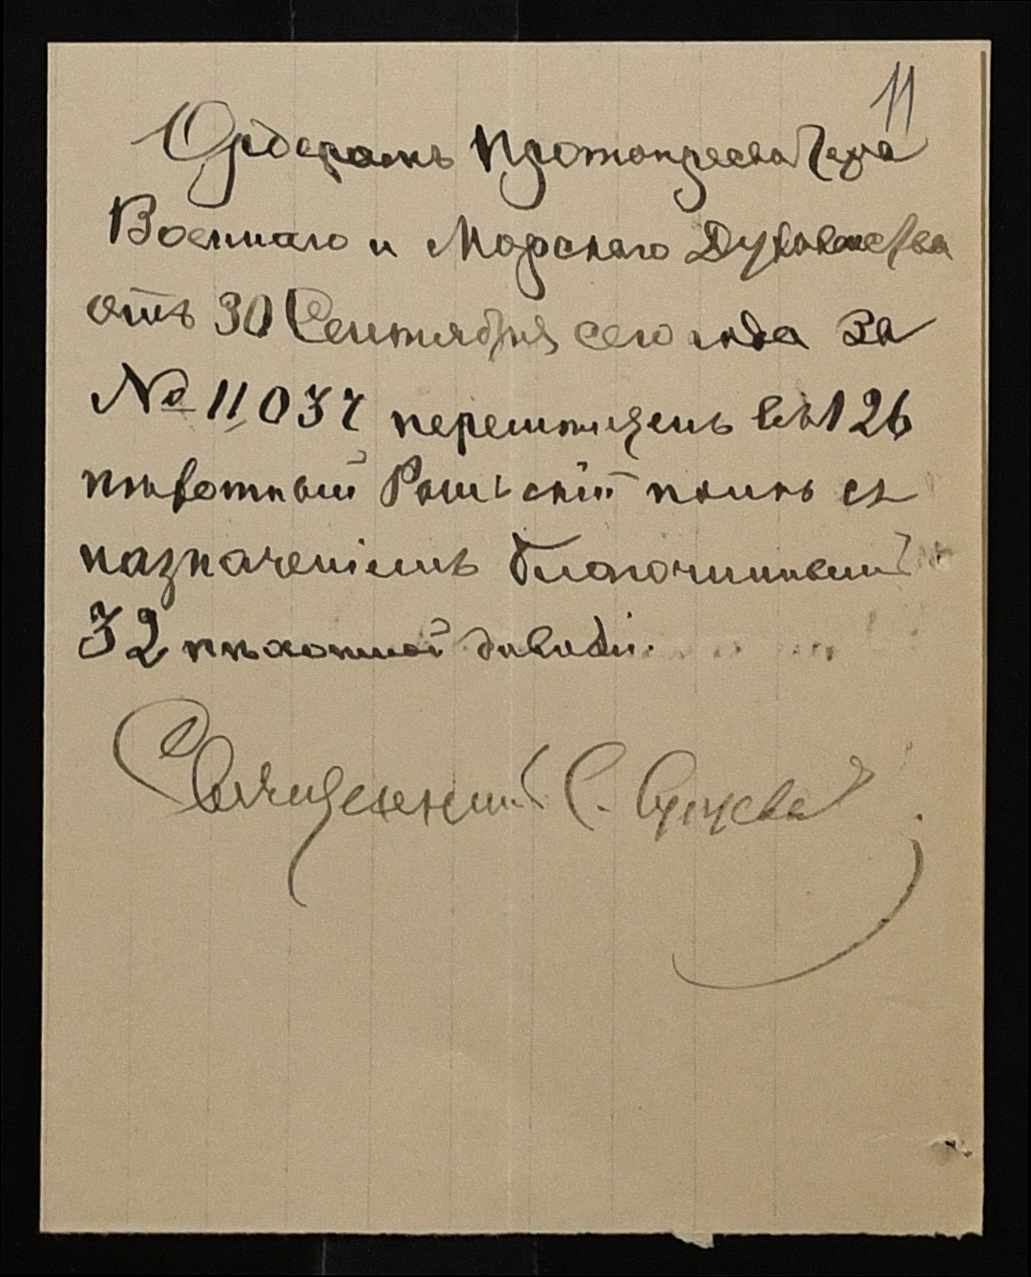 11
Ордеромъ Протопресвитера
Военнаго и Морского Духовенства
отъ 30 Сентября сего года за
№ 11037 перемѣщенъ въ 126
пѣхотный Рыльскій полкъ съ
назначеніемъ благочиннымъ
32 пѣхотной дивизіи.
Священникъ С.